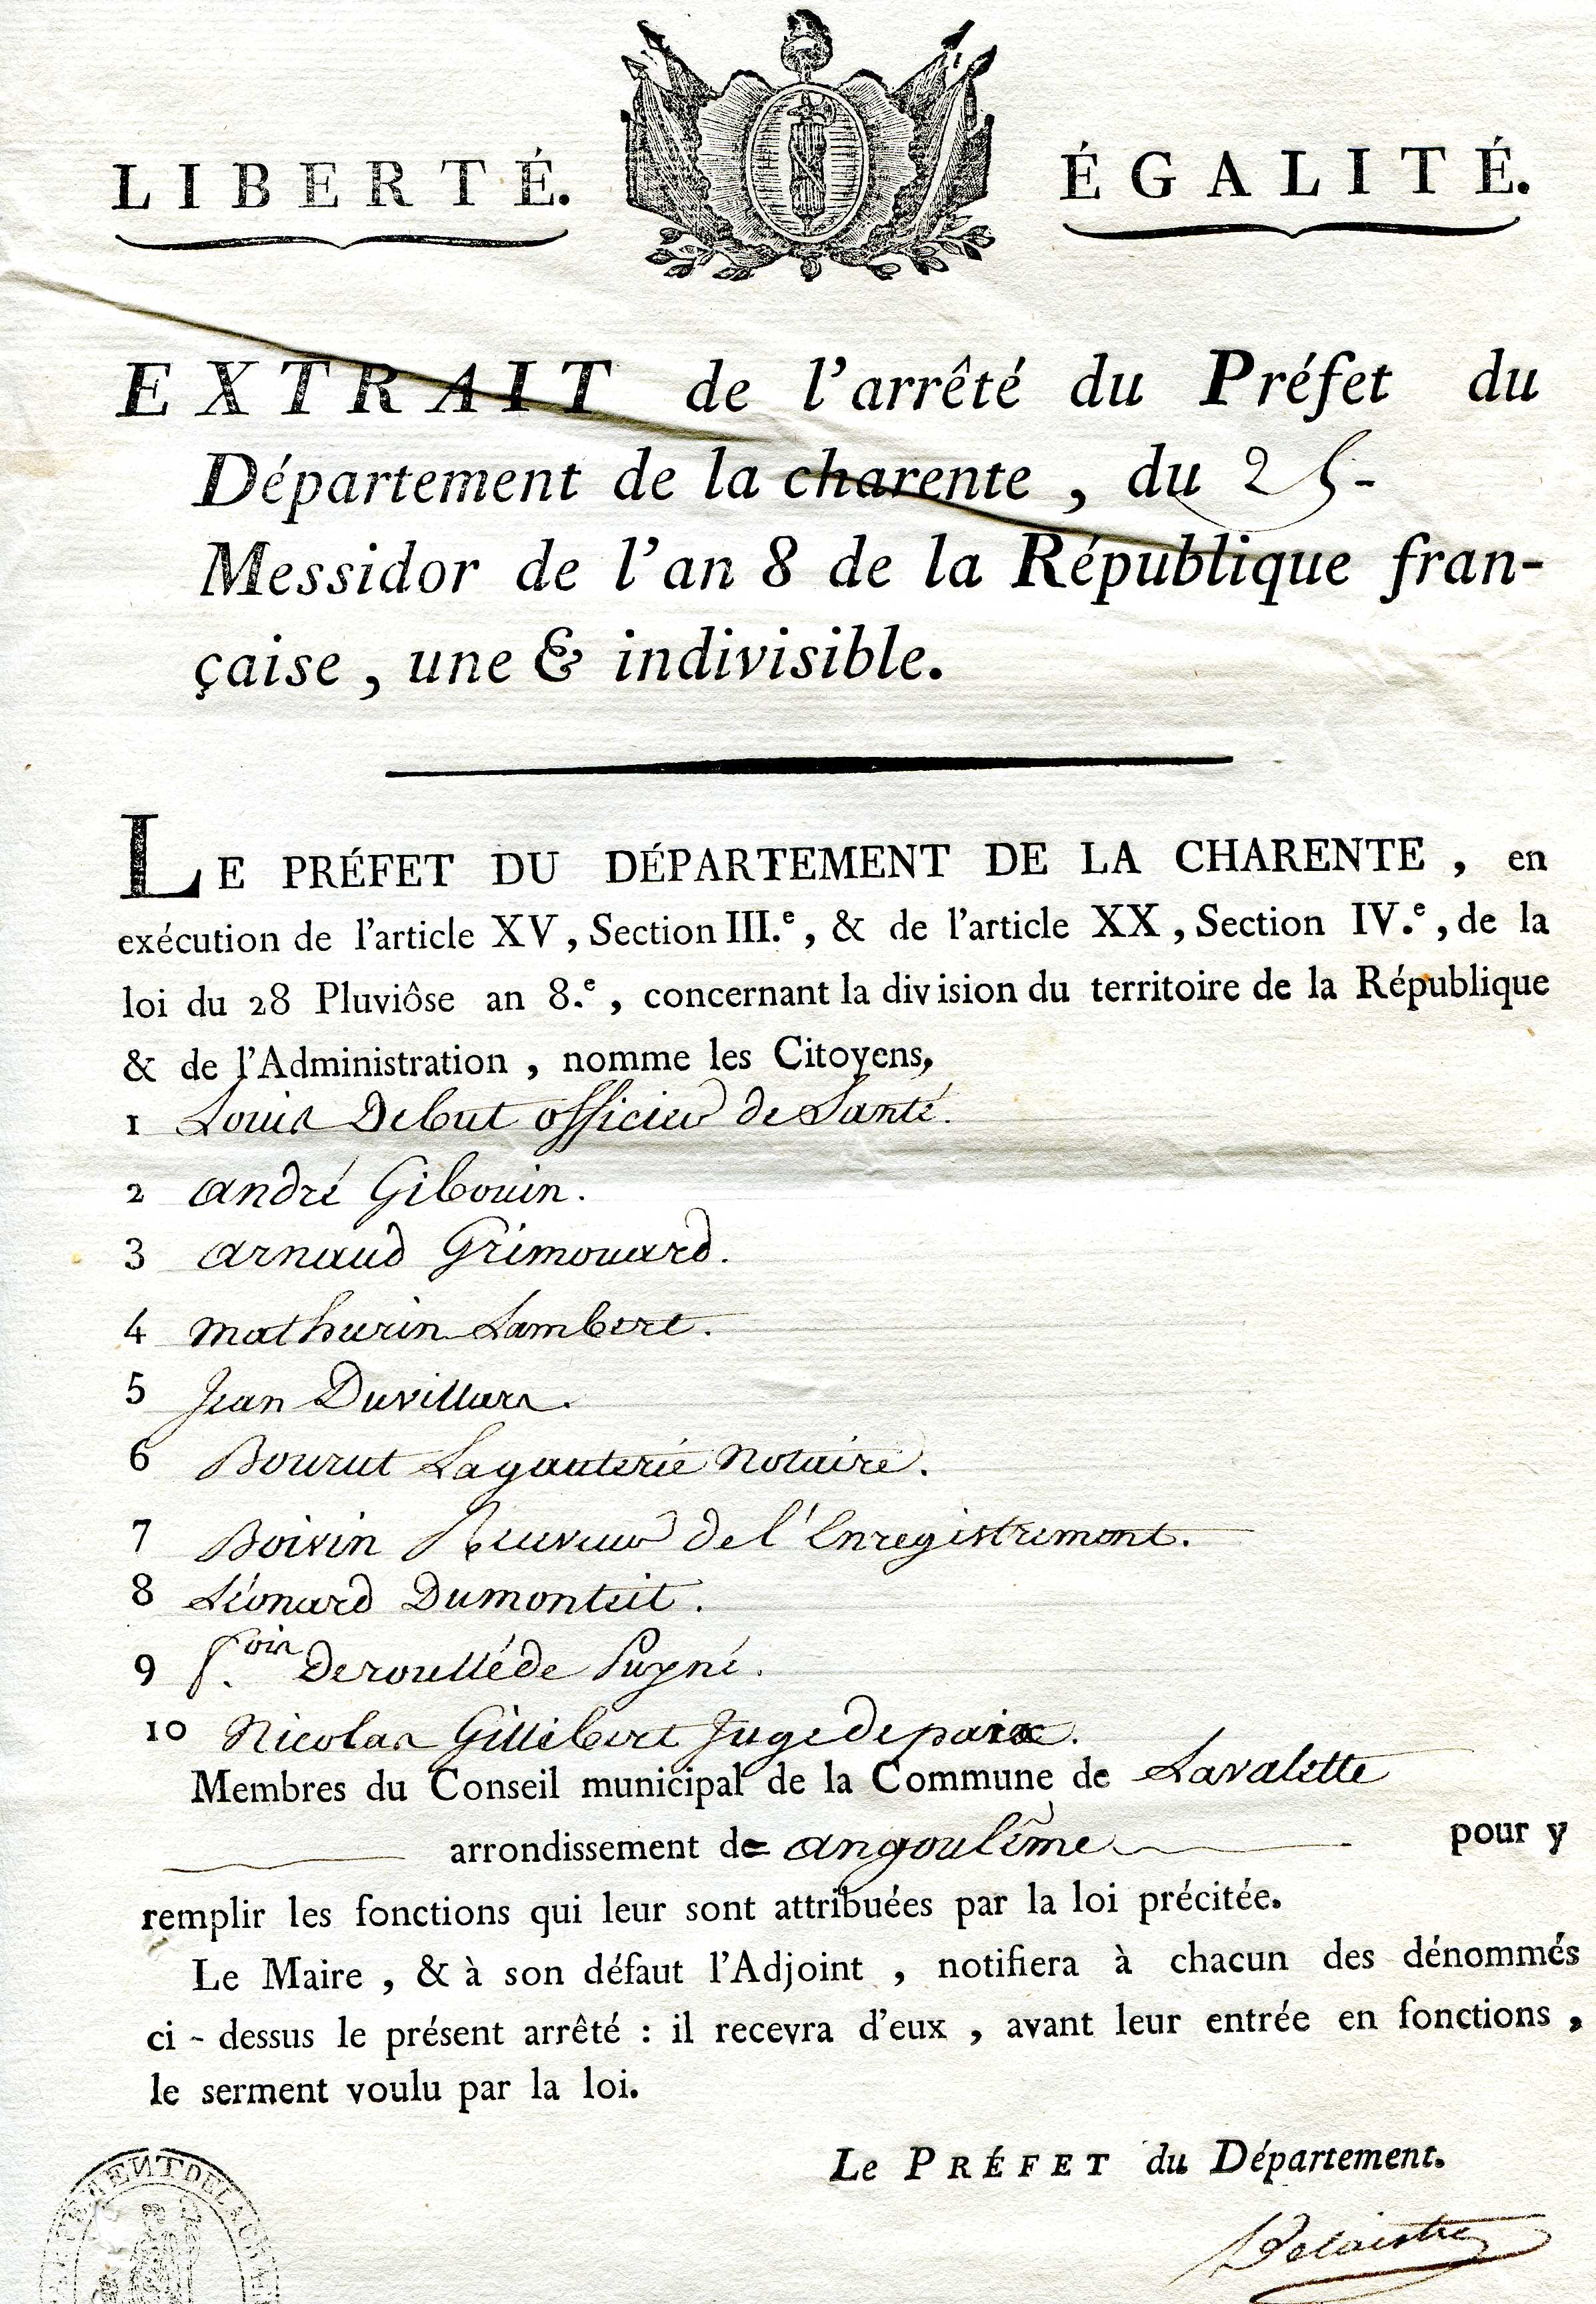 LIBERTÉ. ÉGALITÉ.
EXTRAIT de l'arrêté du Préfet du
Département de la charente, du 25-
Messidor de l'an 8 de la République fran-
çaise, une & indivisible.
LE PRÉFET DU DÉPARTEMENT DE LA CHARENTE, en
exécution de l'article XV, Section III.e, & de l'article XX, Section IV.e, de la
loi du 28 Pluviôse an 8.e, concernant la division du territoire de la République
& de l'Administration, nomme les Citoyens,
1 Louis Debut officier de Santé.
2 andré Gibouin.
3 arnaud Grimouard.
4 mathurin Lambert.
5 Jean Duvillars.
6 Bourut Lagauterie Notaire.
7 Boivin Receveur de l'Enregistrement.
8 Léonard Dumonteit.
9 f.ois Deroullède Puyné.
10 Nicolas Gillibert Juge de paix.
Membres du Conseil municipal de la Commune de Lavalette
arrondissement de angoulême pour y
remplir les fonctions qui leur sont attribuées par la loi précitée.
Le Maire, & à son défaut l'Adjoint, notifiera à chacun des dénommés
ci-dessus le présent arrêté : il recevra d'eux, avant leur entrée en fonctions,
le serment voulu par la loi.
Le PRÉFET du Département.
Delaistre